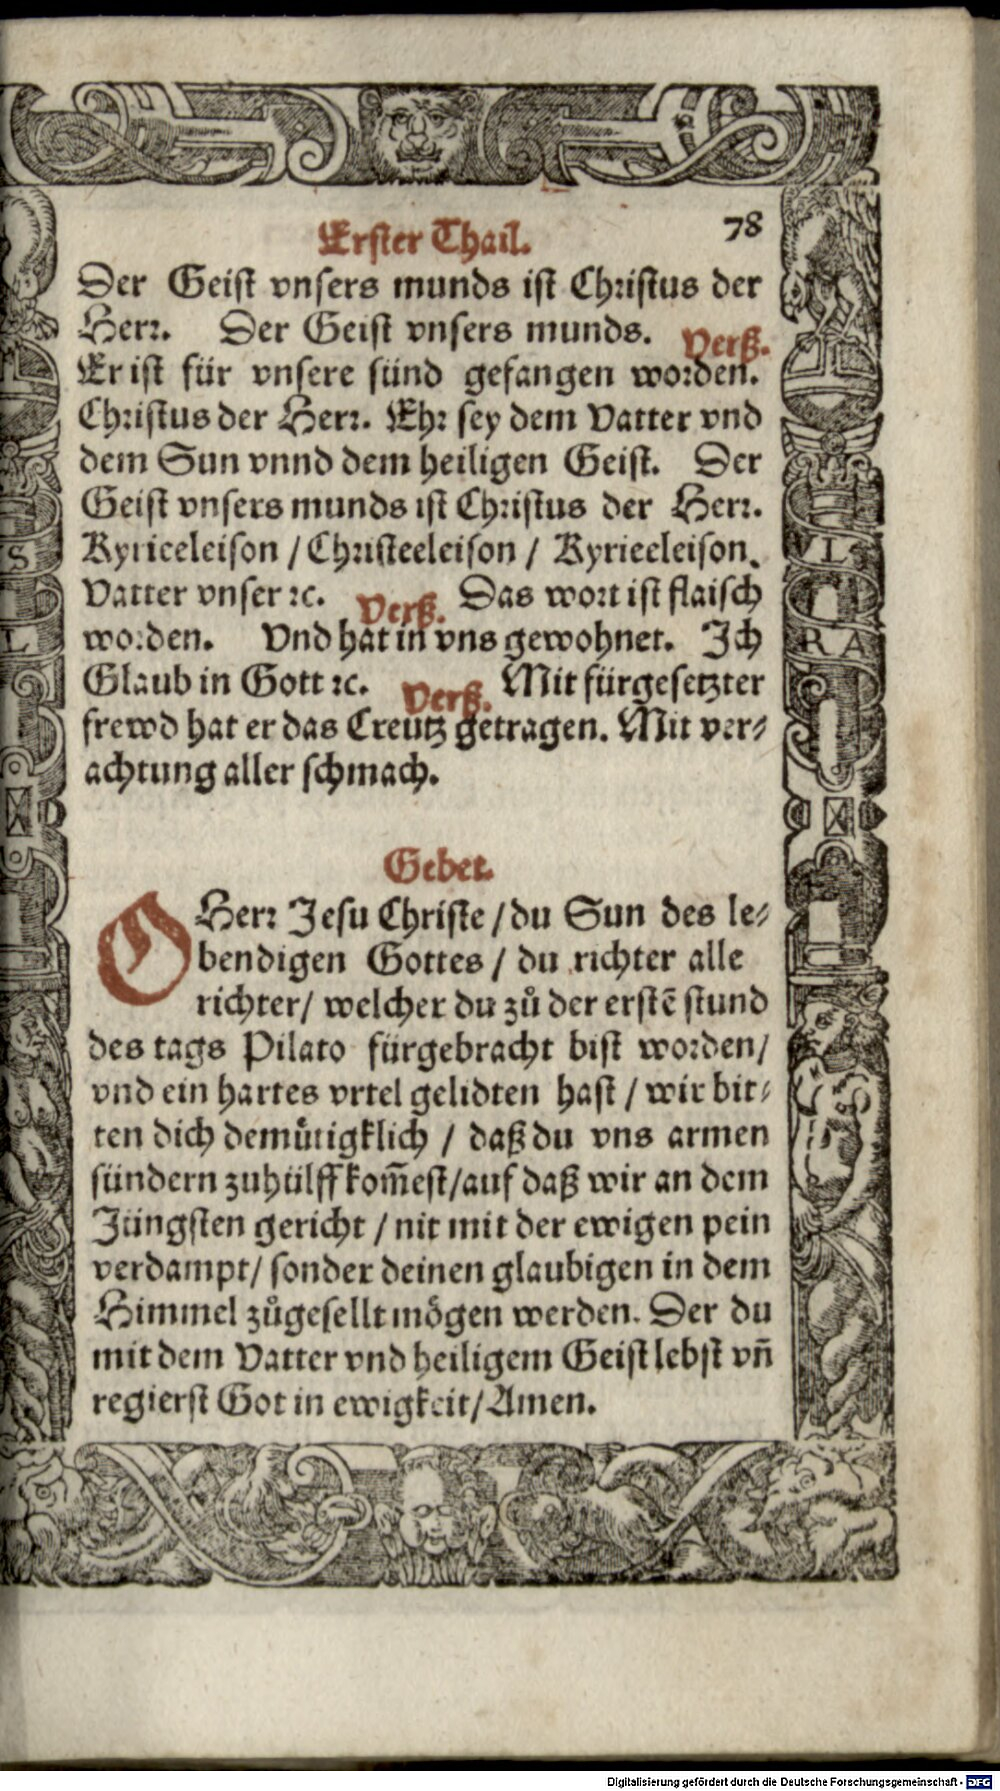 Erster Thail. 78
Der Geist vnsers munds ist Christus der
Herr. Der Geist vnsers munds. Verß.
Er ist für vnsere sünd gefangen worden.
Christus der Herr. Ehr sey dem Vatter vnd
dem Sun vnnd dem heiligen Geist. Der
Geist vnsers munds ist Christus der Herr.
Kyrieeleison / Christeeleison / Kyrieeleison.
Vatter vnser ꝛc. Verß. Das wort ist flaisch
worden. Vnd hat in vns gewohnet. Ich
Glaub in Gott ꝛc. Verß. Mit fürgesetzter
frewd hat er das Creutz getragen. Mit ver⸗
achtung aller schmach.
Gebet.
O Herr Jesu Christe / du Sun des le⸗
bendigen Gottes / du richter alle
richter / welcher du zů der erstē stund
des tags Pilato fürgebracht bist worden /
vnd ein hartes vrtel gelidten hast / wir bit⸗
ten dich demütigklich / daß du vns armen
sündern zuhülff kom̄est / auf daß wir an dem
Jüngsten gericht / nit mit der ewigen pein
verdampt / sonder deinen glaubigen in dem
Himmel zůgesellt mögen werden. Der du
mit dem Vatter vnd heiligem Geist lebst vn̄
regierst Got in ewigkeit / Amen.
S
L
VI
RA
Digitalisierung gefördert durch die Deutsche Forschungsgemeinschaft - DFG